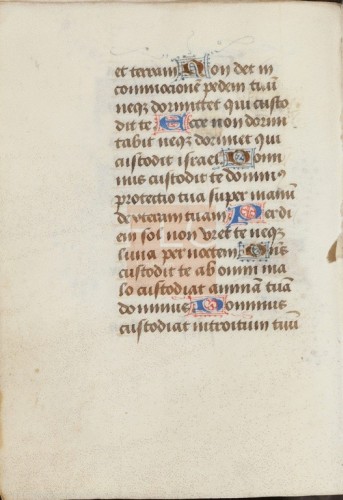 et terram Non det in
commocionē pedem tuū
neqꝫ dormittet qui custo
dit te Ecce non dormi
tabit neqꝫ dormiet qui
custodit israel Domi
nus custodit te dominꝰ
protectio tua super manū
dexteram tuam Per di
em sol non vret te neqꝫ
luna per noctem Dn̄s
custodit te ab omni ma
lo custodiat animā tuā
dominus Dominus
custodiat introitum tuū